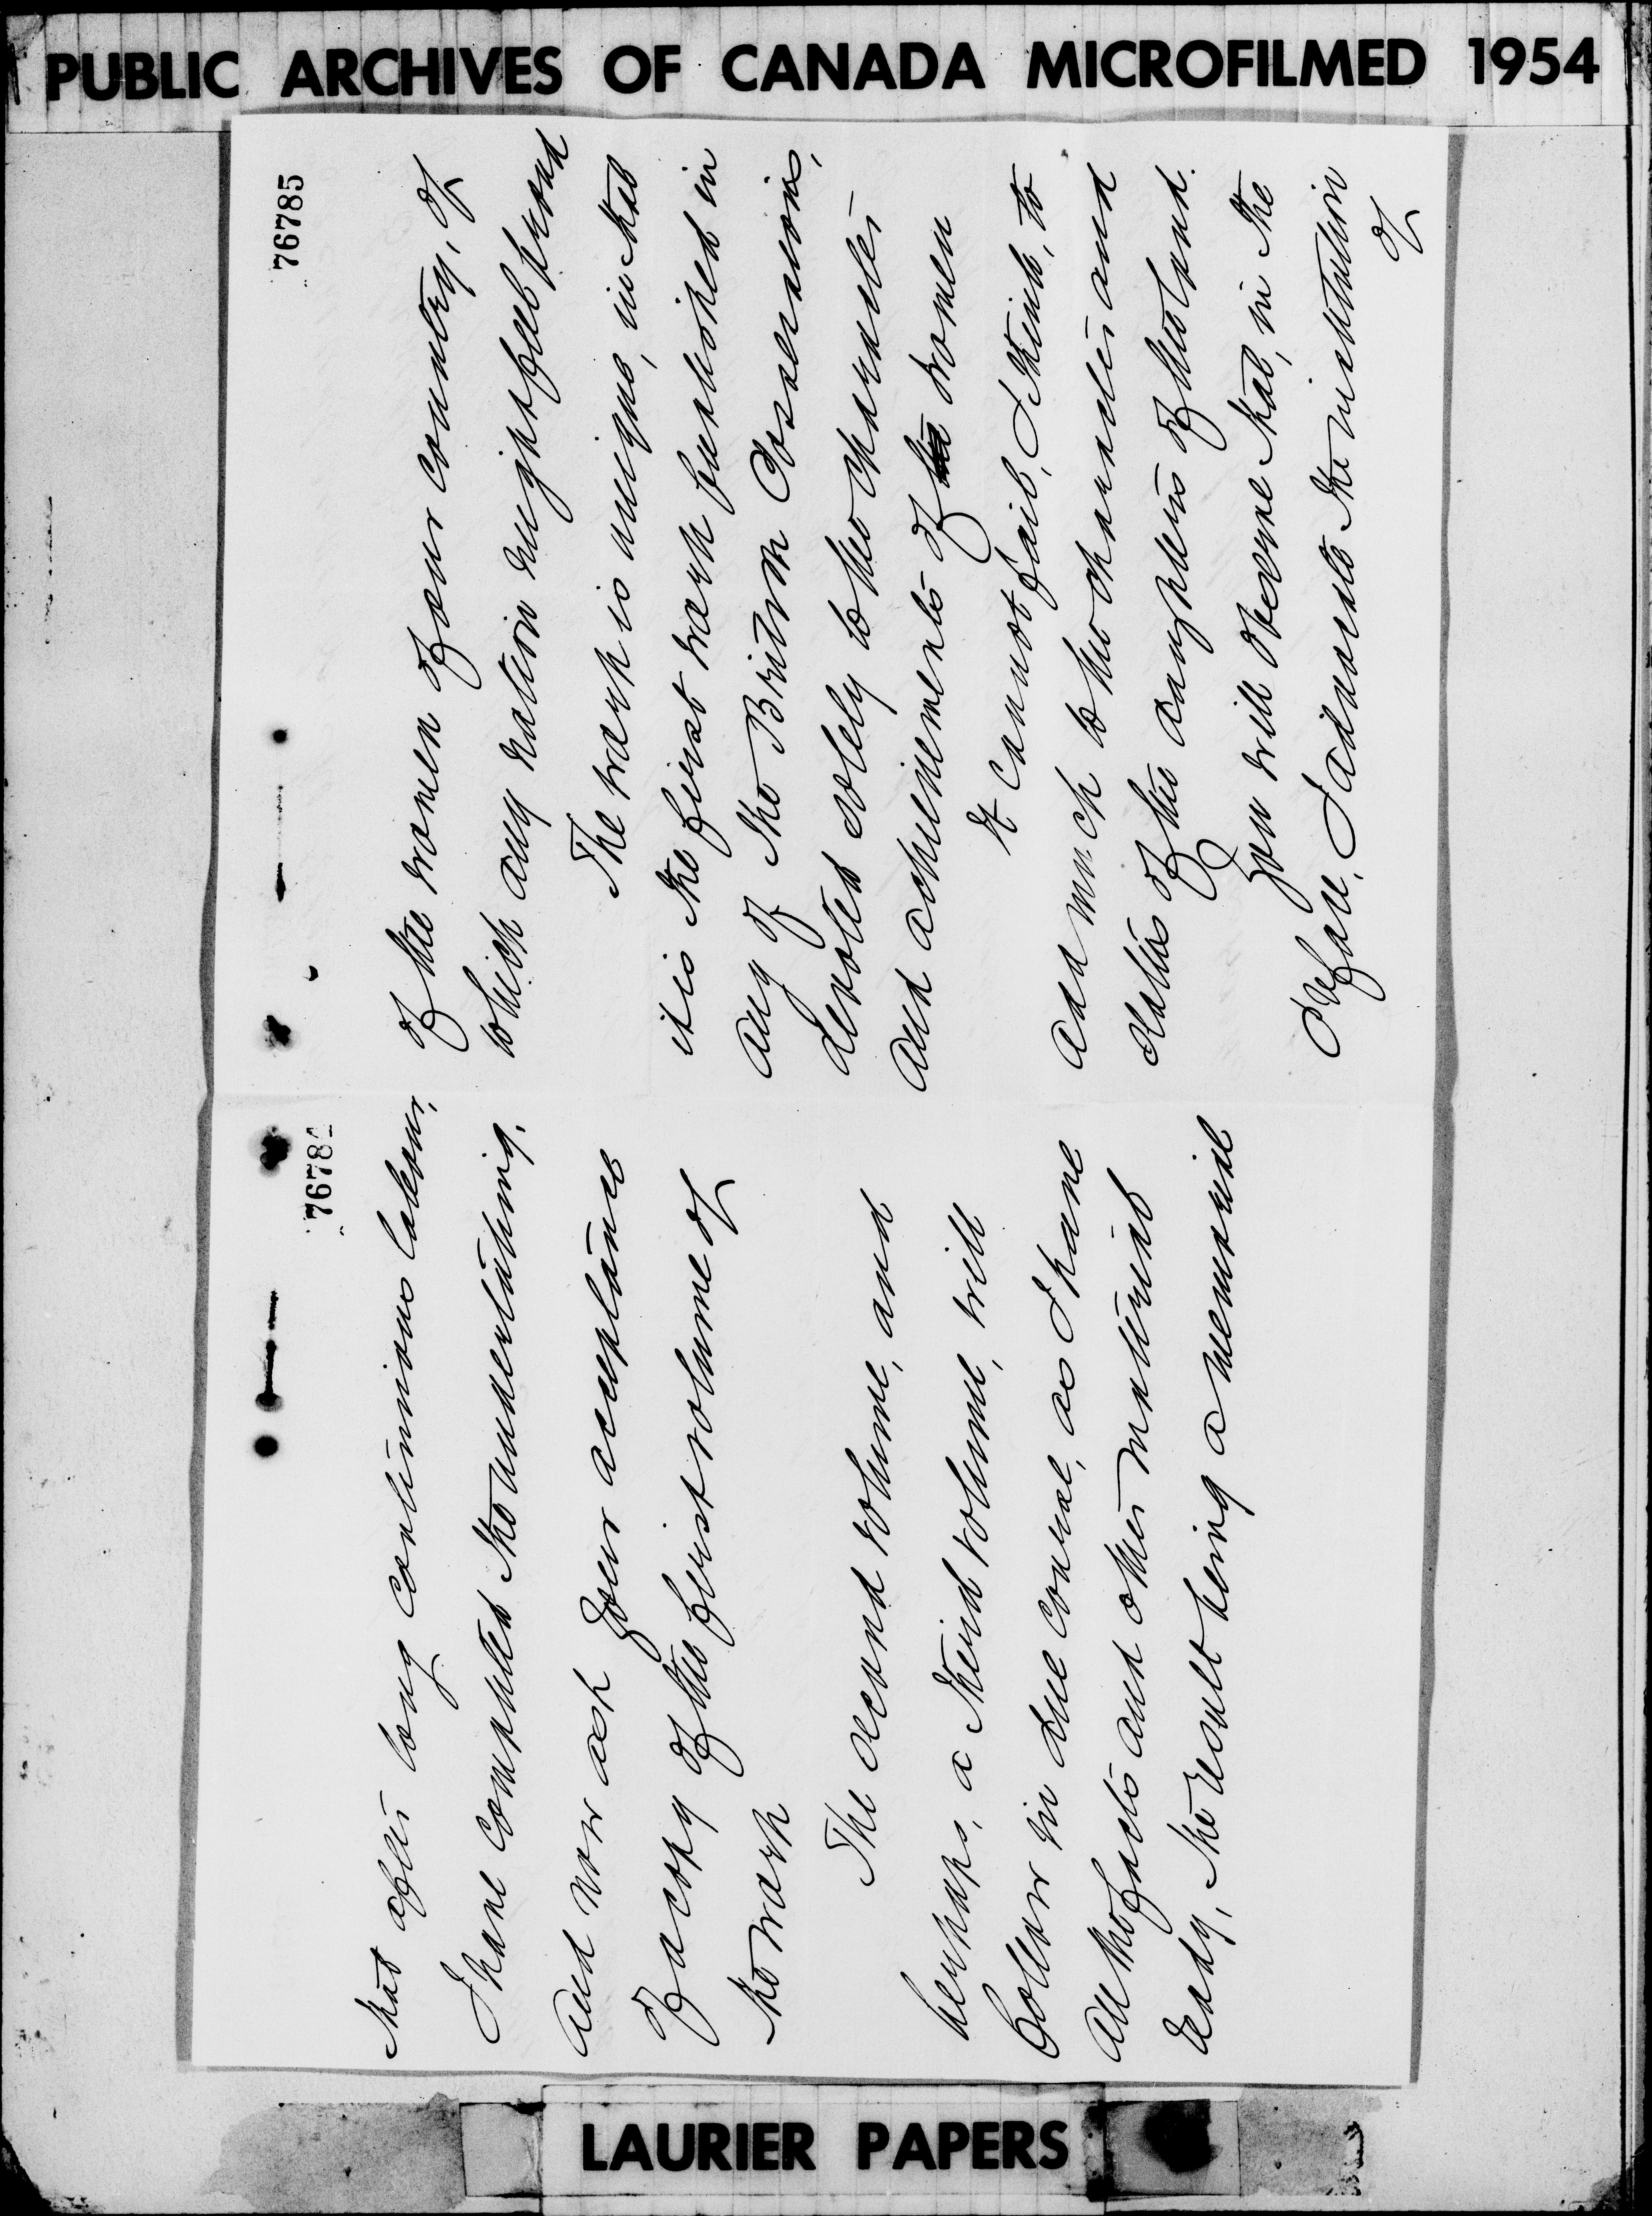 PUBLIC ARCHIVES OF CANADA MICROFILMED 1954
76784
that after long continuous labour,
I have completed the undertaking,
and now ask your acceptance
of a copy of the first volume of
the work
The second volume, and
perhaps, a third volume, will
follow in due course, as I have
all the facts and other material
ready, the result being a memorial
76785
of the women of our country, of
which any nation might feel proud
The work is unique, in that
it is the first work published in
any of the British Possessions,
devoted solely to the character
and achievements of women
It cannot fail, I think, to
add much to the character and
status of the daughters of the land.
You will observe that, in the
Preface, I advocate the institution
of
LAURIER PAPERS